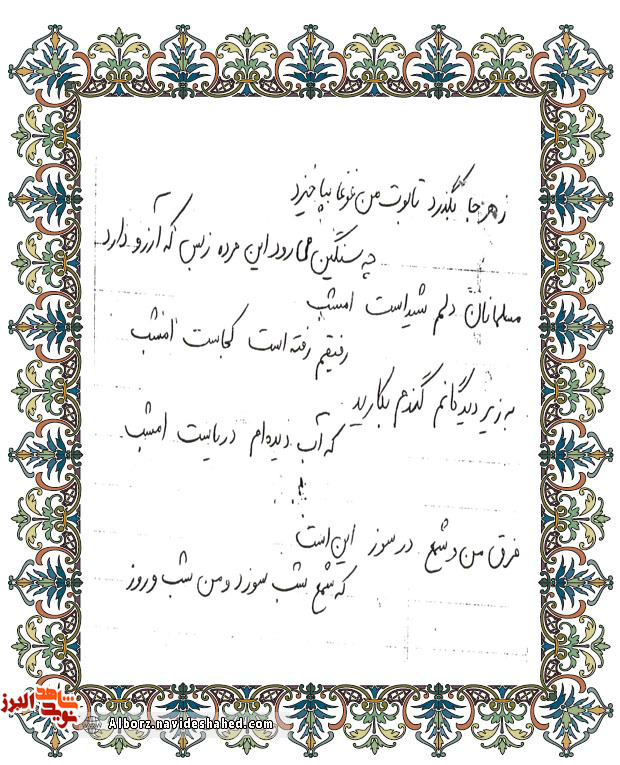 زهر جا بگذرد تابوت من غوغا بپا خیزد
چه سنگین می رود این مرده زبس که آرزو دارد
مسلمانان دلم شیداست امشب
رفیقم رفته است کجاست امشب
به زیر دیدگانم گندم بکارید
که آب دیده ام دریاست امشب
فرق من و شمع در سوز این است
که شمع شب سوزد و من شب و روز
نوید شاهد البرز
Alborz.navideshahed.com